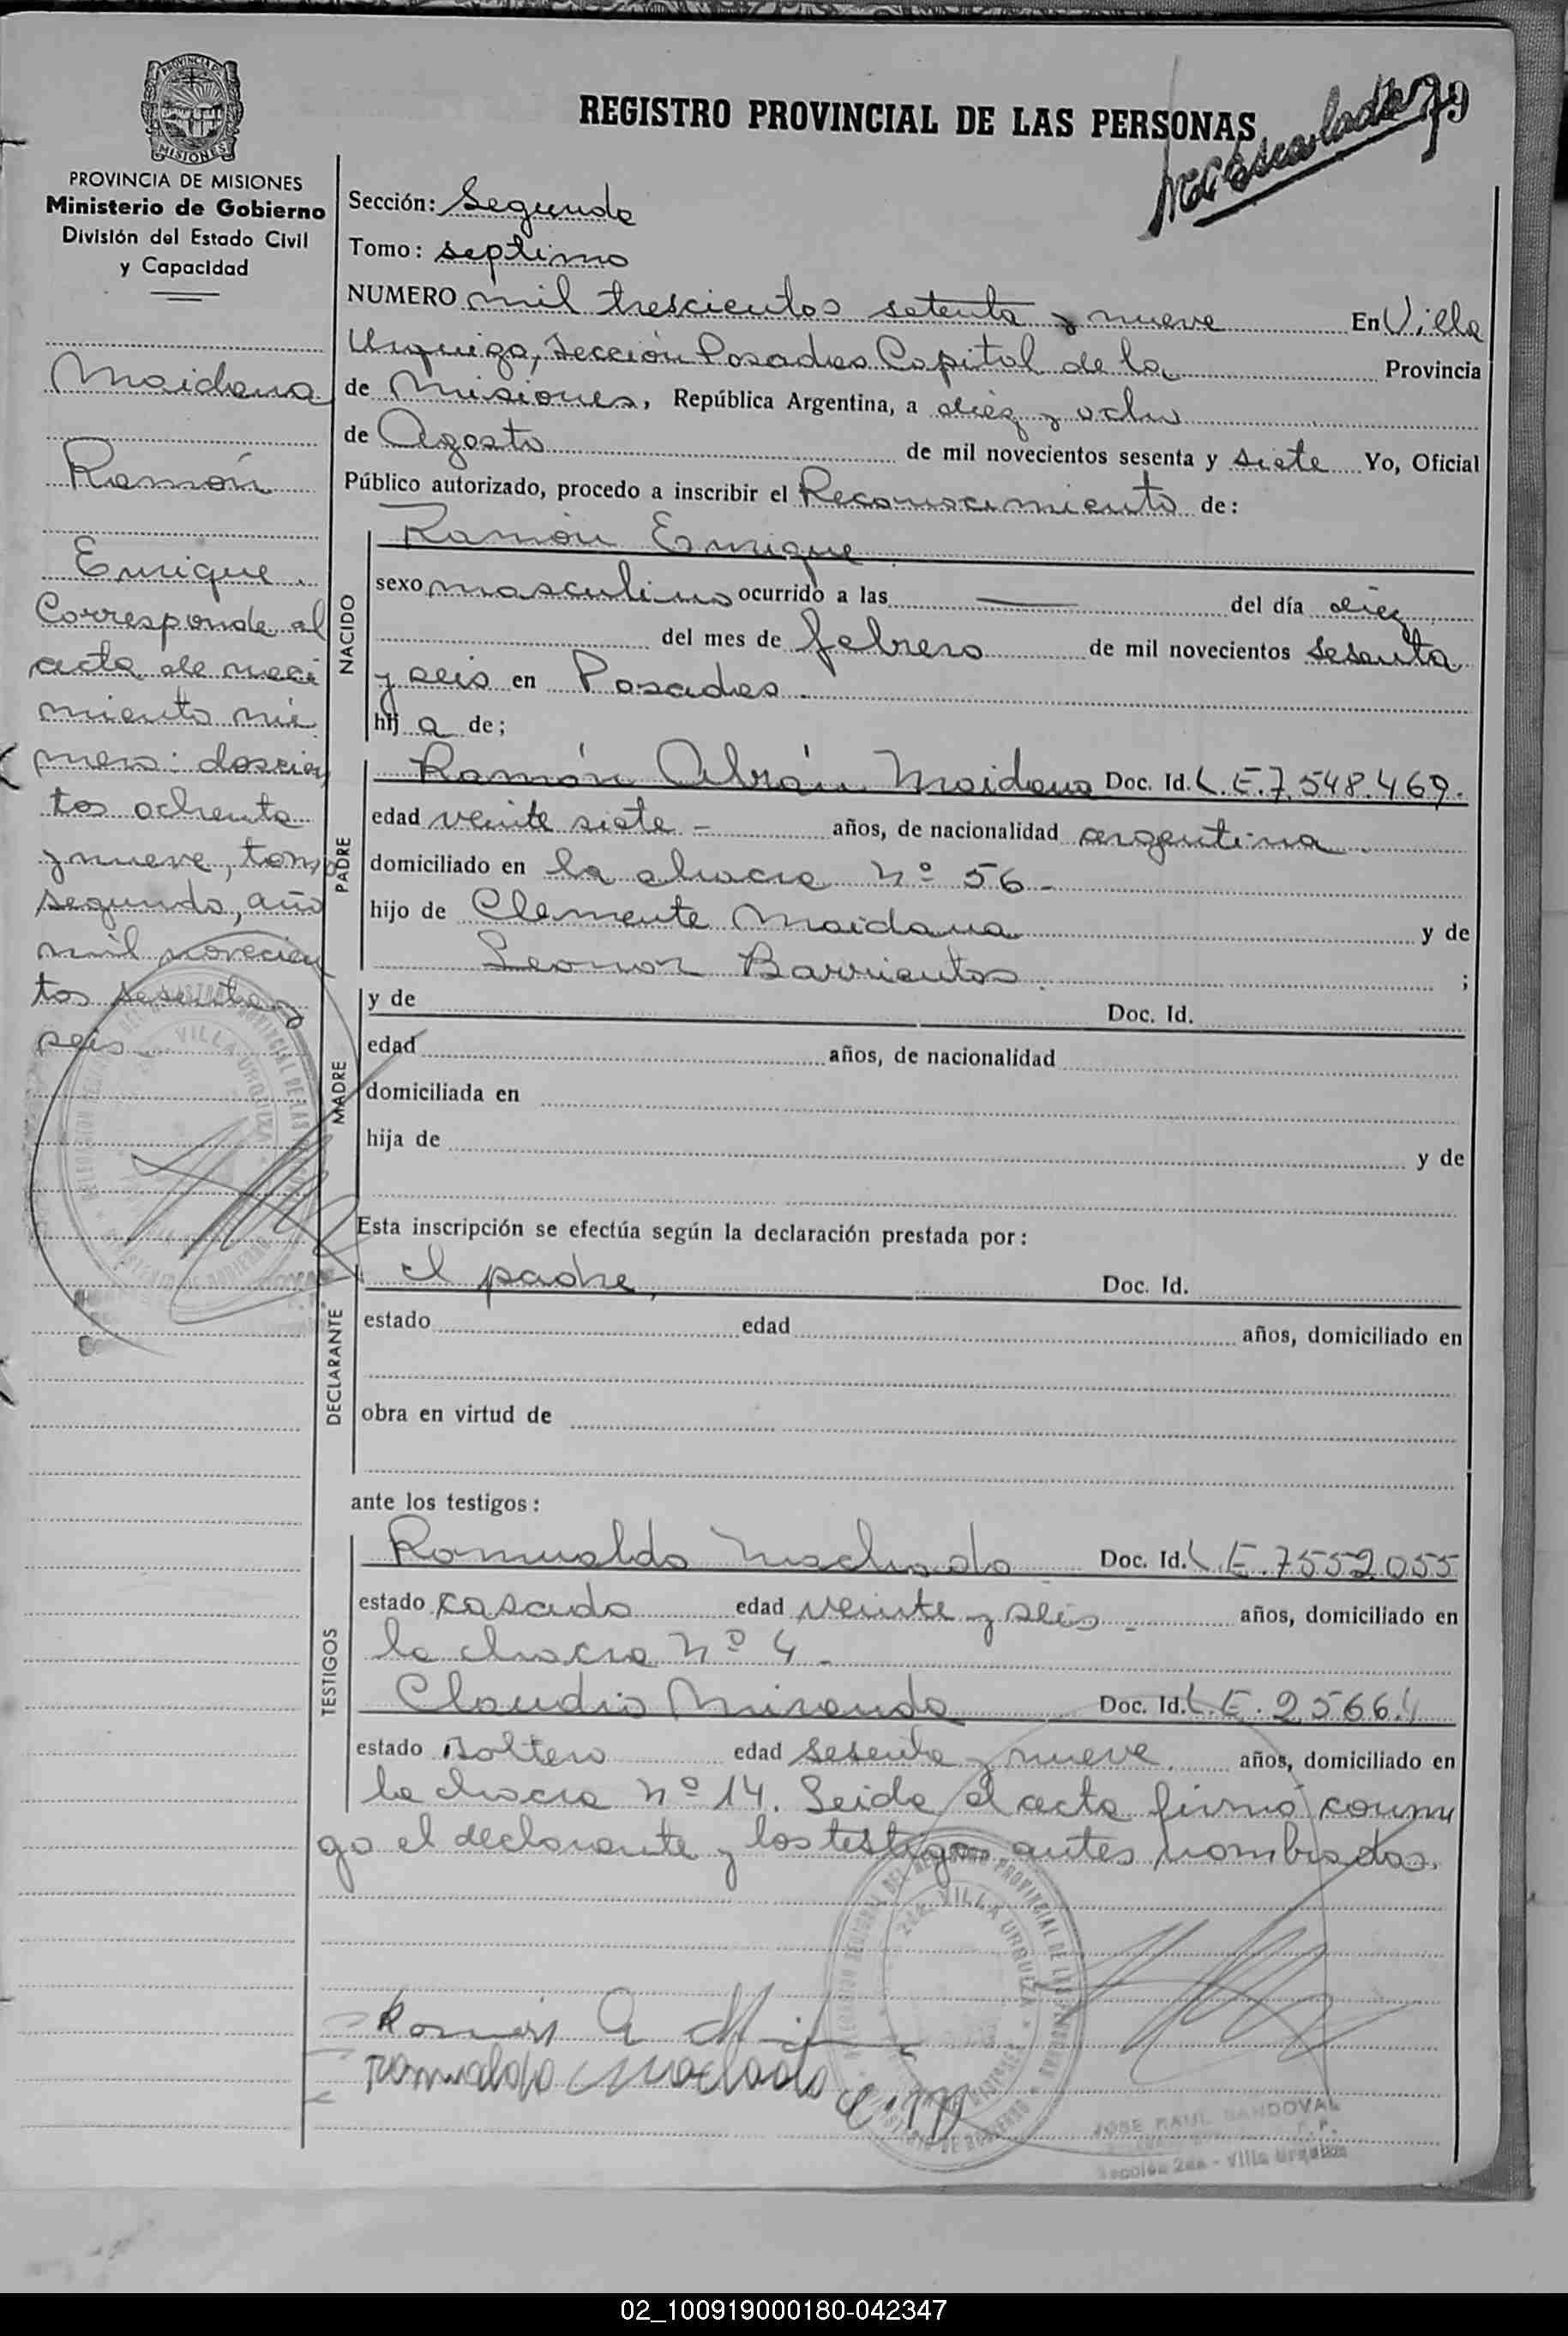 REGISTRO PROVINCIAL DE LAS PERSONAS
79
PROVINCIA DE MISIONES
Ministerio de Gobierno
División del Estado Civil
y Capacidad
Maidana
Ramón
Enrique.
Corresponde al
acta de naci
miento nú
mero: doscien
tos ochenta
y nueve, tomo
segundo, año
mil novecien
tos sesenta y
seis
VILLA URQUIZA
Sección: Segunda
Tomo: septimo
NUMERO mil trescientos setenta y nueve En Villa
Urquiza, Sección Posadas Capital de la Provincia
de Misiones, República Argentina, a diez y ocho
de Agosto de mil novecientos sesenta y siete Yo, Oficial
Público autorizado, procedo a inscribir el Reconocimiento de:
NACIDO
Ramón Enrique
sexo masculino ocurrido a las — del día diez
del mes de febrero de mil novecientos sesenta
y seis en Posadas.
hij o de;
PADRE
Ramón Abrán Maidana Doc. Id. L.E.7.548.469.
edad veinte siete - años, de nacionalidad argentina.
domiciliado en la chacra Nº 56-
hijo de Clemente Maidana y de
Leonor Barrientos. ;
MADRE
y de Doc. Id.
edad años, de nacionalidad
domiciliada en
hija de y de
Esta inscripción se efectúa según la declaración prestada por:
DECLARANTE
el padre, Doc. Id.
estado edad años, domiciliado en
obra en virtud de
ante los testigos:
TESTIGOS
Romualdo Machado Doc. Id. L.E.7552055
estado casado edad veinte y seis - años, domiciliado en
la chacra Nº 4-
Claudio Miranda Doc. Id. L.E. 25664
estado soltero edad sesenta y nueve años, domiciliado en
la chacra Nº 14. Leida el acta firmó conmi
go el declarante y los testigos antes nombrados.
2da. VILLA URQUIZA
Ramón A M
romualdo Machado
JOSE RAUL SANDOVAL
Sección 2da - Villa Urquiza
02_100919000180-042347